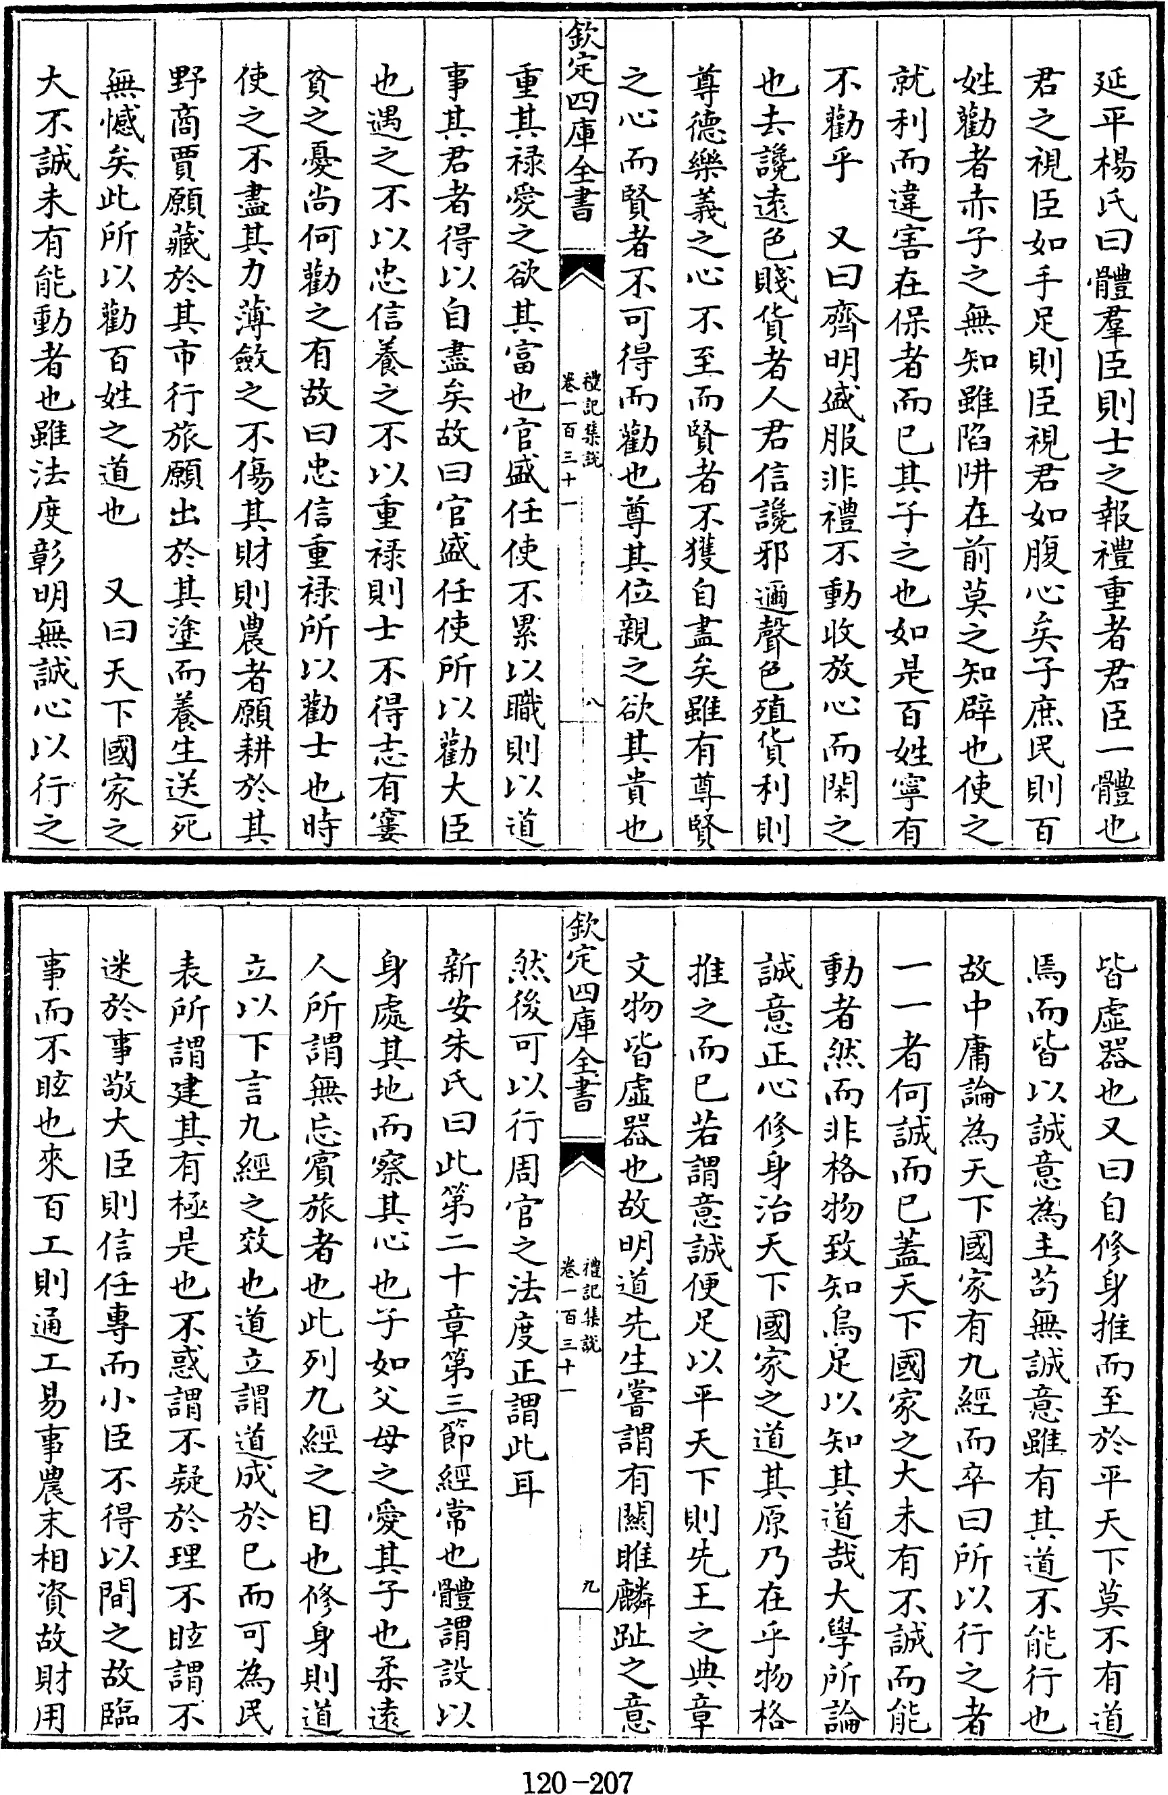 延平楊氏曰體羣臣則士之報禮重者君臣一體也
君之視臣如手足則臣視君如腹心矣子庶民則百
姓勸者赤子之無知雖陷阱在前莫之知辟也使之
就利而違害在保者而已其子之也如是百姓寧有
不勸乎 又曰齊明盛服非禮不動收放心而閑之
也去讒遠色賤貨者人君信讒邪邇聲色殖貨利則
尊德樂義之心不至而賢者不獲自盡矣雖有尊賢
之心而賢者不可得而勸也尊其位親之欲其貴也
欽定四庫全書
禮記集說
卷一百三十一
八
重其祿愛之欲其富也官盛任使不累以職則以道
事其君者得以自盡矣故曰官盛任使所以勸大臣
也遇之不以忠信養之不以重祿則士不得志有窶
貧之憂尚何勸之有故曰忠信重祿所以勸士也時
使之不盡其力薄斂之不傷其財則農者願耕於其
野商賈願藏於其市行旅願出於其塗而養生送死
無憾矣此所以勸百姓之道也 又曰天下國家之
大不誠未有能動者也雖法度彰明無誠心以行之
皆虛器也又曰自修身推而至於平天下莫不有道
焉而皆以誠意為主苟無誠意雖有其道不能行也
故中庸論為天下國家有九經而卒曰所以行之者
一一者何誠而已蓋天下國家之大未有不誠而能
動者然而非格物致知烏足以知其道哉大學所論
誠意正心修身治天下國家之道其原乃在乎物格
推之而已若謂意誠便足以平天下則先王之典章
文物皆虛器也故明道先生嘗謂有關雎麟趾之意
欽定四庫全書
禮記集說
卷一百三十一
九
然後可以行周官之法度正謂此耳
新安朱氏曰此第二十章第三節經常也體謂設以
身處其地而察其心也子如父母之愛其子也柔遠
人所謂無忘賓旅者也此列九經之目也修身則道
立以下言九經之效也道立謂道成於已而可為民
表所謂建其有極是也不惑謂不疑於理不眩謂不
迷於事敬大臣則信任專而小臣不得以間之故臨
事而不眩也來百工則通工易事農末相資故財用
120-207